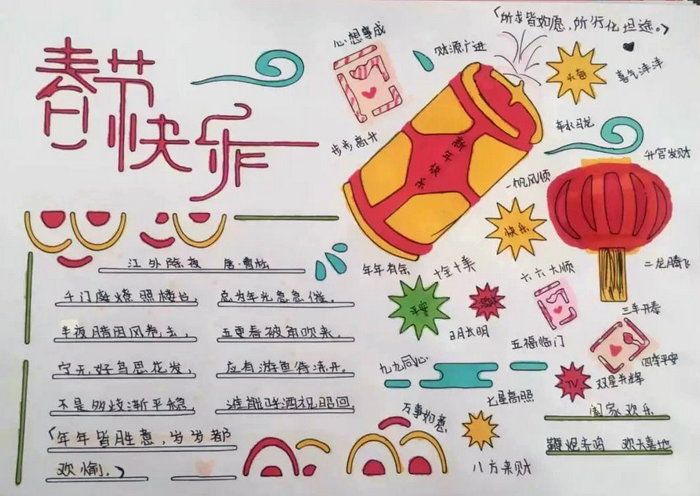 春节快乐
「所求皆如愿,所行化坦途。」
心想事成
财源广进
喜气洋洋
步步高升
新年快乐
车水马龙
升官发财
一帆风顺
快乐
江外除夜 唐·曹松
千门庭燎照楼台, 总为年光急急催。
半夜腊因风卷去, 五更春被角吹来。
宁无好鸟思花发, 应有游鱼待冻开。
不是多歧渐平稳, 谁能呼酒祝昭回
「年年皆胜意,岁岁都
欢愉。」
年年有余
十全十美
六六大顺
二龙腾飞
平安
五福临门
九九同心
四季平安
七星高照
双星并辉
万事如意
阖家欢乐
八方来财
鞭炮齐鸣 欢天喜地